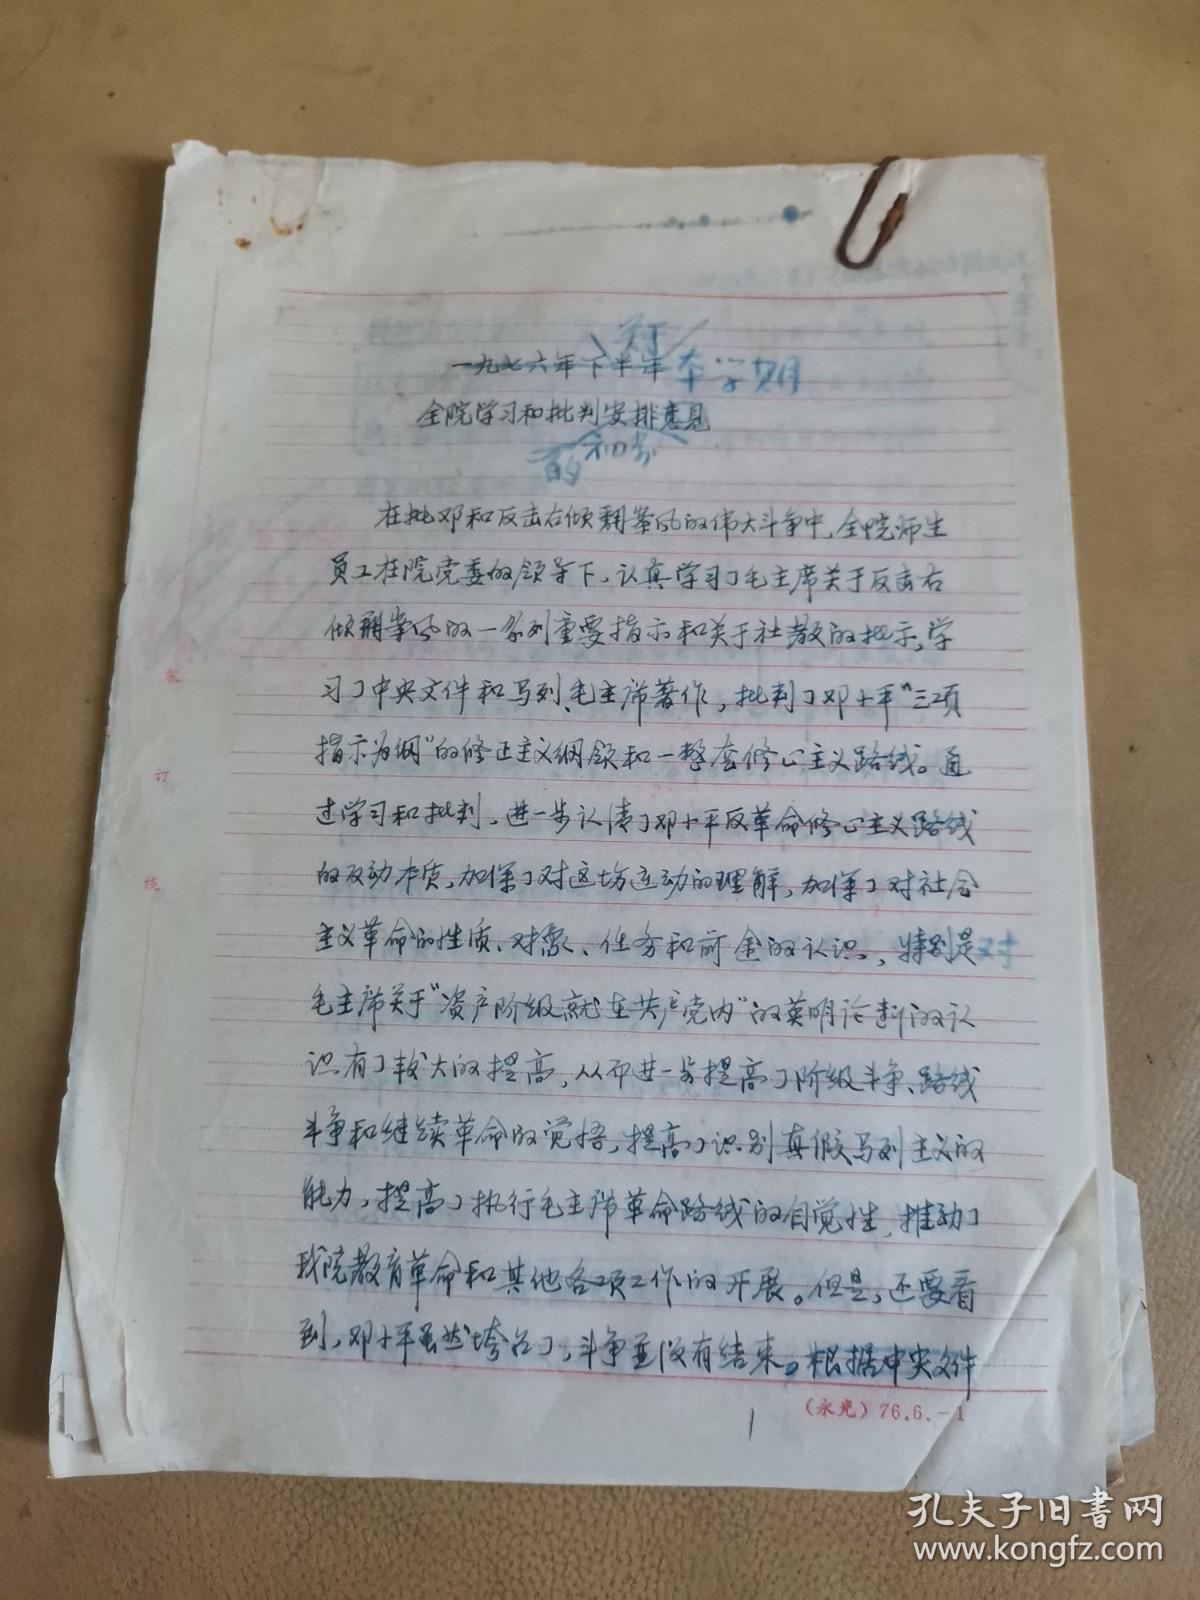 关于
一九七六年下半年 本学期
全院学习和批判安排意见
的 初步
在批邓和反击右倾翻案风的伟大斗争中，全院师生
员工在院党委的领导下，认真学习了毛主席关于反击右
倾翻案风的一系列重要指示和关于社教的批示，学
习了中央文件和马列、毛主席著作，批判了邓小平“三项
指示为纲”的修正主义纲领和一整套修正主义路线。通
过学习和批判，进一步认清了邓小平反革命修正主义路线
的反动本质，加深了对这场运动的理解，加深了对社会
主义革命的性质、对象、任务和前途的认识，特别是对
毛主席关于“资产阶级就在共产党内”的英明论断的认
识有了较大的提高，从而进一步提高了阶级斗争、路线
斗争和继续革命的觉悟，提高了识别真假马列主义的
能力，提高了执行毛主席革命路线的自觉性，推动了
我院教育革命和其他各项工作的开展。但是，还要看
到，邓小平虽然垮台了，斗争并没有结束。根据中央文件
装
订
线
(永光) 76.6.-1
1
孔夫子旧书网
www.kongfz.com